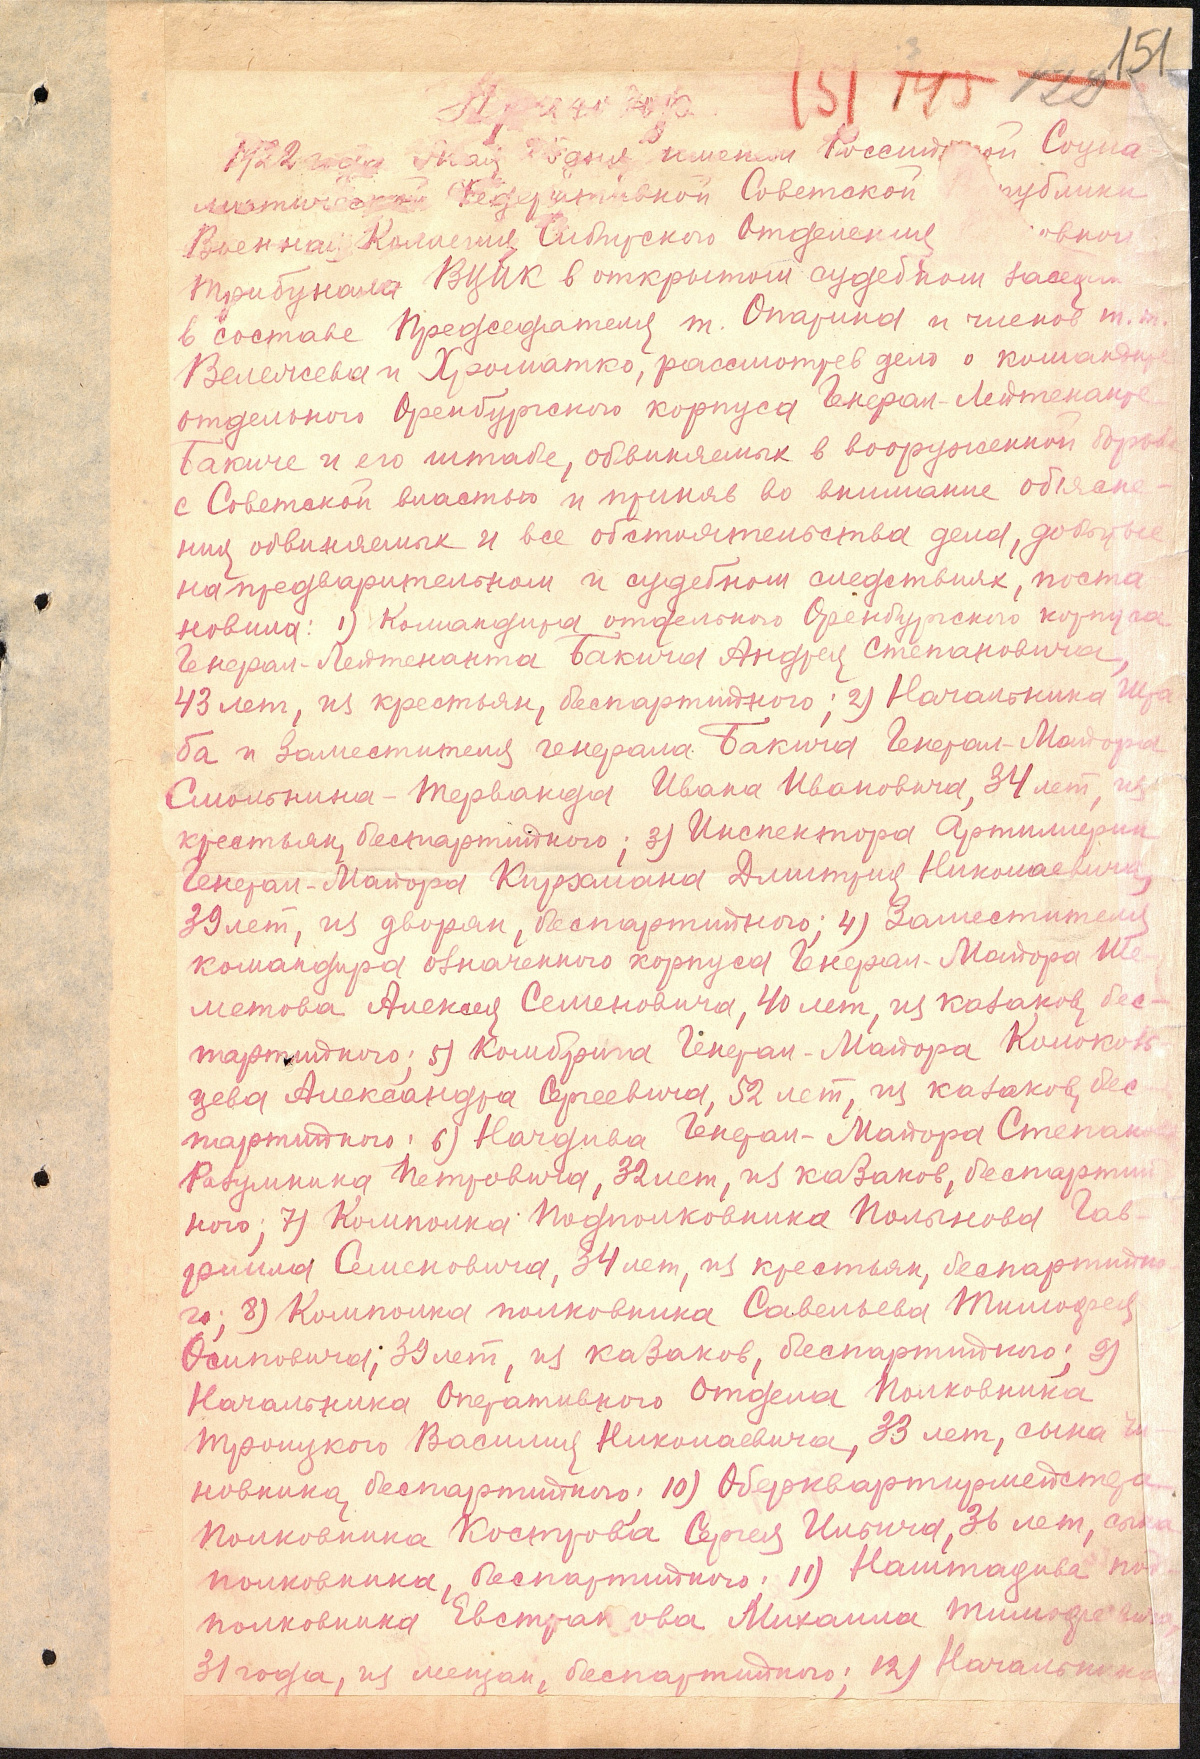 151 145 128 151
Приговор
1922 года Мая 25 дня именем Российской Социа
листической Федеративной Советской Республики
Военная Коллегия Сибирского Отделения
Трибунала ВЦИК в открытом судебном заседан
в составе Председателя т. Опарина и членов т.т.
Велячева и Хроматко, рассмотрев дело о командире
отдельного Оренбургского корпуса Генерал-Лейтенанте
Бакиче и его штабе, обвиняемых в вооруженной борьбе
с Советской властью и приняв во внимание об'ясне-
ния обвиняемых и все обстоятельства дела, добытые
на предварительном и судебном следствиях, поста
новила: 1) Командира отдельного Оренбургского корпуса
Генерал-Лейтенанта Бакича Андрея Степановича,
43 лет, из крестьян, беспартийного; 2) Начальника шта
ба и заместителя генерала Бакича Генерал-Майора
Смольнина-Терванда Ивана Ивановича, 34 лет, из
крестьян, беспартийного; 3) Инспектора Артиллерии
Генерал-Майора Кирхмана Дмитрия Николаевича,
39 лет, из дворян, беспартийного; 4) Заместителя
командира означенного корпуса Генерал-Майора Ше-
метова Алексея Семеновича, 40 лет, из казаков, бес-
партийного; 5) Комбрига Генерал-Майора Колоколь
цева Александра Сергеевича, 52 лет, из казаков, бес-
партийного; 6) Начдива Генерал-Майора Степанова
Разумника Петровича, 32 лет, из казаков, беспартий
ного; 7) Комполка Подполковника Полынова Гав-
риила Семеновича, 34 лет, из крестьян, беспартийно
го; 8) Комполка полковника Савельева Тимофея
Осиповича, 39 лет, из казаков, беспартийного; 9)
Начальника Оперативного Отдела Полковника
Троицкого Василия Николаевича, 33 лет, сына чи-
новника, беспартийного; 10) Оберквартирмейстера
Полковника Кострова Сергея Ильича, 36 лет, сына
полковника, беспартийного; 11) Наштадива под-
полковника Евстратова Михаила Тимофеевича,
31 года, из мещан, беспартийного; 12) Начальника